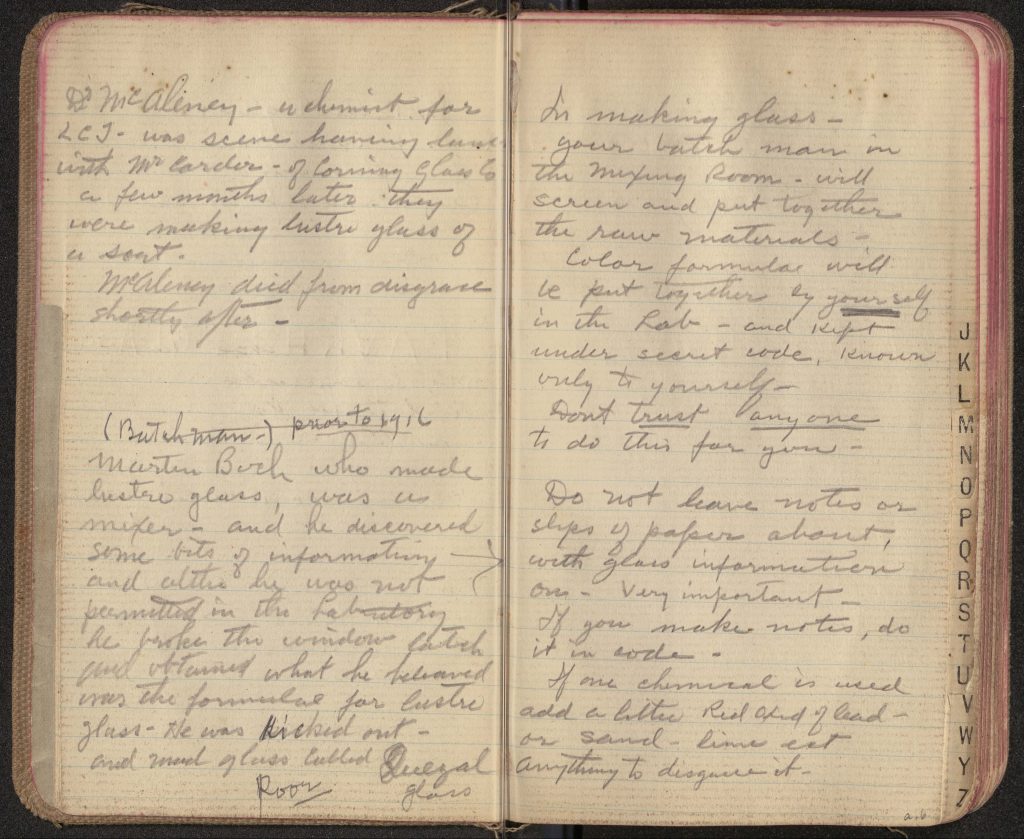 Dr McAleney - a chemist for
LCT - was scene having lunch
with Mr Carder - of Corning Glass Co
a few months later they
were making lustre glass of
a sort.
McAleney died from disgrace
shortly after -
(Batch man -) prior to 1916
Martin Bach who made
lustre glass, was a
mixer - and he discovered
some bits of information
and altho he was not
permitted in the Laboratory
he broke the window catch
and obtained what he believed
was the formulae for lustre
glass - He was kicked out -
and made glass called Quezal
Poor glass
In making glass -
your batch man in
the Mixing Room - will
screen and put together
the raw materials -
Color formulae will
be put together by yourself
in the Lab - and kept
under secret code, known
only to yourself -
Dont trust anyone
to do this for you -
Do not leave notes or
slips of paper about,
with glass information
on - Very important -
If you make notes, do
it in code -
If one chemical is used
add a little Red Oxid of lead -
or sand - lime ect
anything to disguise it -
J
K
L
M
N
O
P
Q
R
S
T
U
V
W
Y
Z